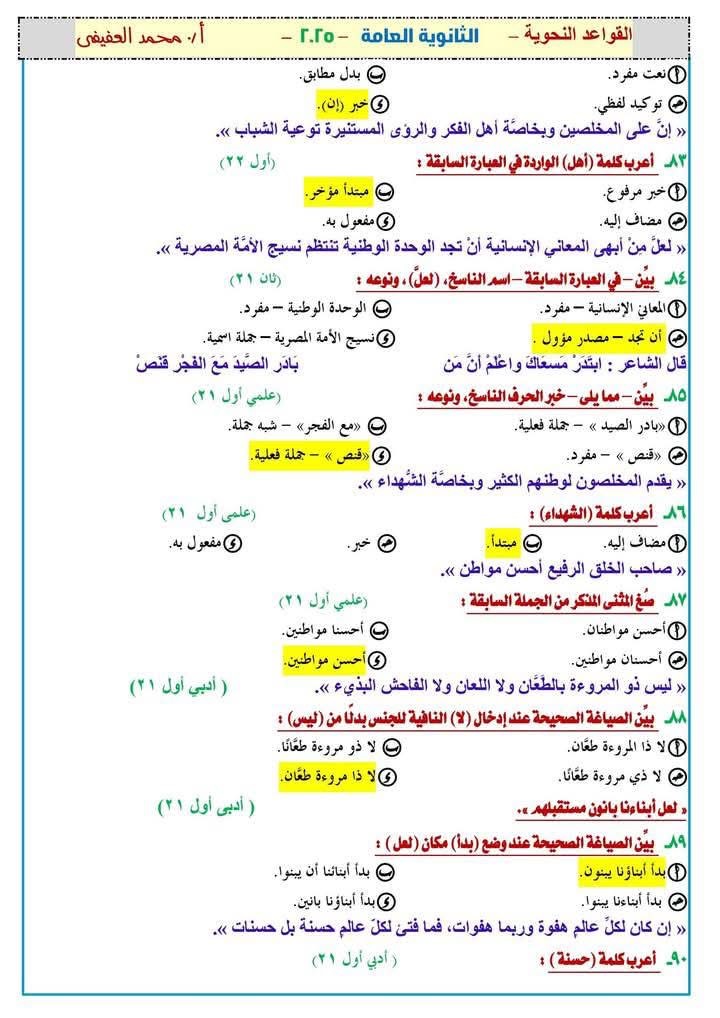 القواعد النحوية – الثانوية العامة – ٢٠٢٥ – أ/ محمد العفيفى
أ نعت مفرد. ب بدل مطابق.
جـ توكيد لفظي. د خبر (إن).
« إنَّ على المخلصين وبخاصَّة أهل الفكر والرؤى المستنيرة توعية الشباب ».
٨٣ـ أعرب كلمة (أهل) الواردة في العبارة السابقة : (أول ٢٢)
أ خبر مرفوع. ب مبتدأ مؤخر.
جـ مضاف إليه. د مفعول به.
« لعلَّ مِنْ أبهى المعاني الإنسانية أنْ تجد الوحدة الوطنية تنتظم نسيج الأمَّة المصرية ».
٨٤ـ بيِّن – في العبارة السابقة – اسم الناسخ، (لعلَّ) ، ونوعه : (ثان ٢١)
أ المعاني الإنسانية – مفرد. ب الوحدة الوطنية – مفرد.
جـ أن تجد – مصدر مؤول . د نسيج الأمة المصرية – جملة اسمية.
قال الشاعر : ابتَدَرْ مَسعَاكَ واعْلَمْ أنَّ مَن بَادَر الصَّيدَ مَعَ الفَجْر قنَصْ
٨٥ـ بيِّن – مما يلى – خبر الحرف الناسخ، ونوعه : (علمي أول ٢١)
أ «بادر الصيد » – جملة فعلية. ب «مع الفجر» – شبه جملة.
جـ «قنص » – مفرد. د «قنص » – جملة فعلية.
« يقدم المخلصون لوطنهم الكثير وبخاصَّة الشُّهداء ».
٨٦ـ أعرب كلمة (الشهداء) : (علمى أول ٢١)
أ مضاف إليه. ب مبتدأ. جـ خبر. د مفعول به.
« صاحب الخلق الرفيع أحسن مواطن ».
٨٧ـ صُغ المثنى المذكر من الجملة السابقة : (علمي أول ٢١)
أ أحسن مواطنان. ب أحسنا مواطنين.
جـ أحسنان مواطنين. د أحسن مواطنين.
« ليس ذو المروءة بالطَّعَّان ولا اللعان ولا الفاحش البذيء ». ( أدبي أول ٢١)
٨٨ـ بيِّن الصياغة الصحيحة عند إدخال (لا) النافية للجنس بدلًا من (ليس) :
أ لا ذا المروءة طعَّان. ب لا ذو مروءة طعَّانًا.
جـ لا ذي مروءة طعَّانًا. د لا ذا مروءة طعَّان.
« لعل أبناءنا بانون مستقبلهم ». ( أدبى أول ٢١)
٨٩ـ بيِّن الصياغة الصحيحة عند وضع (بدأ) مكان (لعل ) :
أ بدأ أبناؤنا يبنون. ب بدأ أبنائنا أن يبنوا.
جـ بدأ أبناءنا يبنوا. د بدأ أبناؤنا بانين.
« إن كان لكلِّ عالمٍ هفوة وربما هفوات، فما فتئ لكلّ عالمٍ حسنة بل حسنات ».
٩٠ـ أعرب كلمة (حسنة ) : ( أدبي أول ٢١)